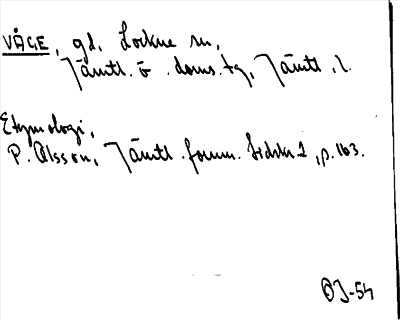 VÅGE, gd, Lockne sn,
Jämtl. ö. doms. tg, Jämtl. l.
Etymologi,
P. Olsson, Jämtl. fornm. tidskr 1, p. 163.
OJ-54